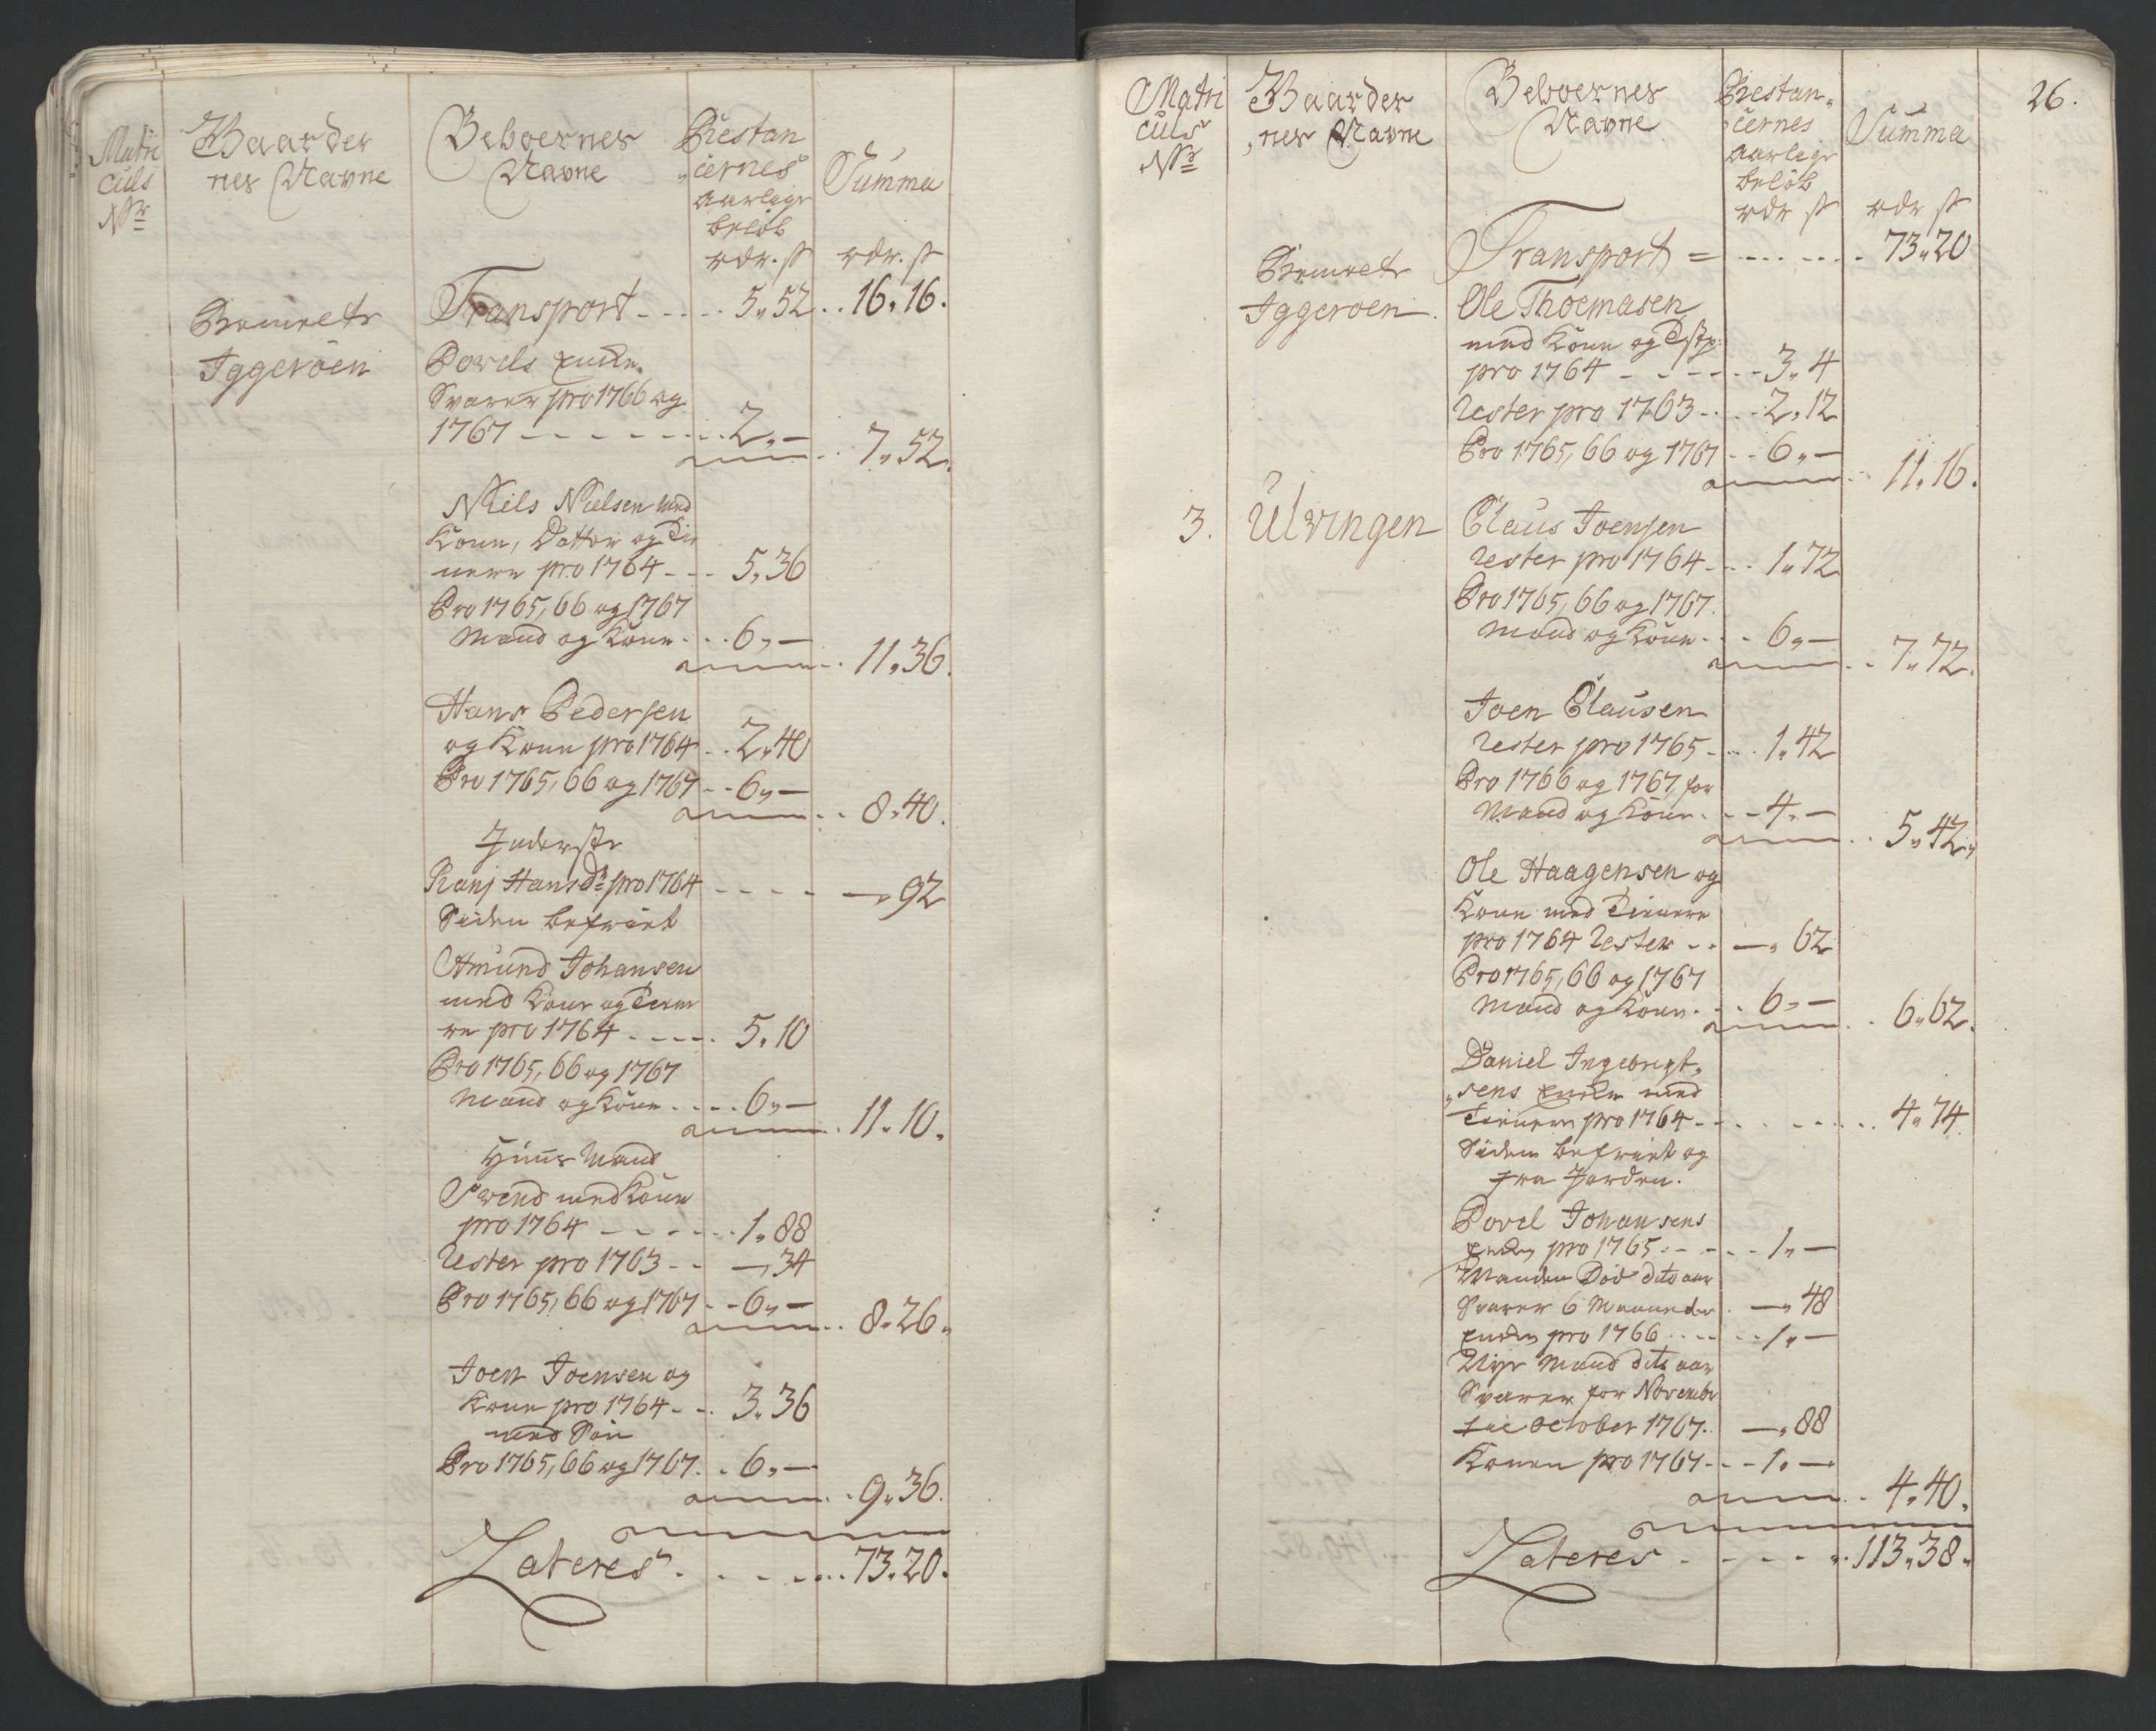 Matri
culs
No
Gaarder
nes Navne
Beboernes
Navne
Restan
cernes
aarlige
beløb
rdr. ß
Summa
rdr. ß
Iggeröen
Transport 5,,52 16,,16.
Povels Enke
Svarer pro 1766 og
1767 2,,—
7,,52.
Niels Nielsen med
Kone, Datter og Tie
nere pro 1764 5,,36
Pro 1765, 66 og 1767
Mand og Kone 6,,—
11,,36.
Hans Pedersen
og Kone pro 1764 2,,40
Pro 1765, 66 og 1767 6,,—
8,,40.
Inderste
Hansdr pro 1764 —,,92
Siden befriet
Amund Johansen
med Kone og Tiene
re pro 1764 5,,10
Pro 1765, 66 og 1767
Mand og Kone 6,,—
11,,10.
Huus Mand
Svend med Kone
pro 1764 1,,88
Rester pro 1763 —,,34
Pro 1765, 66 og 1767 6,,—
8,,26.
Joen Joensen og
Kone pro 1764 3,,36
med Søn
Pro 1765, 66 og 1767 6,,—
9,,36.
Lateres 73,,20.
26.
Matri
culs
No
Gaarder
nes Navne
Beboernes
Navne
Restan
cernes
aarlige
beløb
rdr ß
Summa
rdr ß
Iggeroen
Transport 73,,20
Ole Thoemasen
med Kone og
pro 1764 3,,4
Rester pro 1763 2,,12
Pro 1765, 66 og 1767 6,,—
11,,16.
3. Ulvingen
Claus Joensen
Rester pro 1764 1,,72
Pro 1765, 66 og 1767.
Mand og Kone 6,,—
7,,72.
Joen Clausen
Rester pro 1765 1,,42
Pro 1766 og 1767, for
Mand og Kone 4,,—
5,,42,,
Ole Haagensen og
Kone med Tienere
pro 1764 Rester —,,62
Pro 1765, 66 og 1767
Mand og Kone 6,,—
6,,62.
Daniel Ingebrigt,,
,,sens Enke med
Tienere pro 1764 4,,74.
Siden befriet og
fra Jorden.
Povel Johansens
Enke pro 1765 1,,—
Manden Död dito aar
Svarer 6 Maaneder —,,48
Enken pro 1766 1,,—
Nye Mand dito aar
Svarer for November
til October 1767. —,,88
Konen pro 1767 1,,—
4,,40.
Lateres 113,,38.